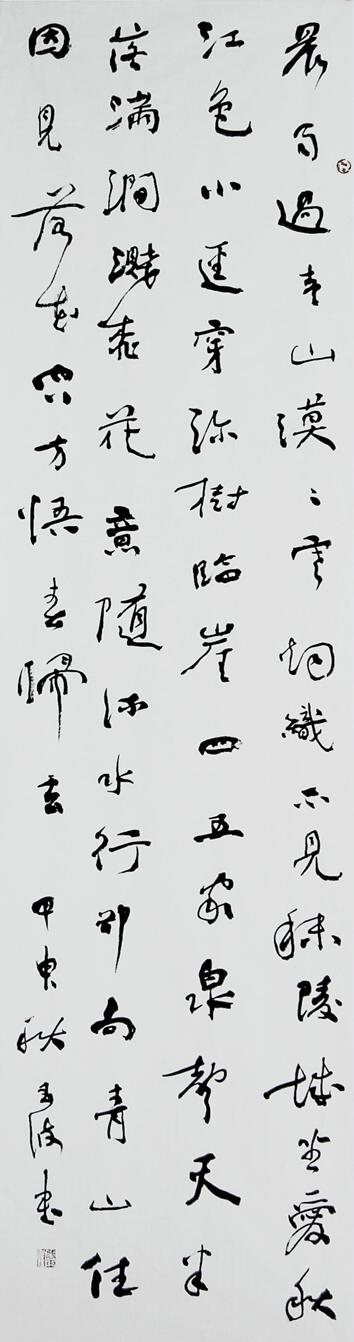 晨雨過青山漠〻寒烟織不見秣陵城坐愛秋
江色小逕穿深樹臨崖四五家泉聲天半
落滿澗濺柰花意隨流水行卻向青山住
因見落花空方悟春歸去 甲申秋 波書